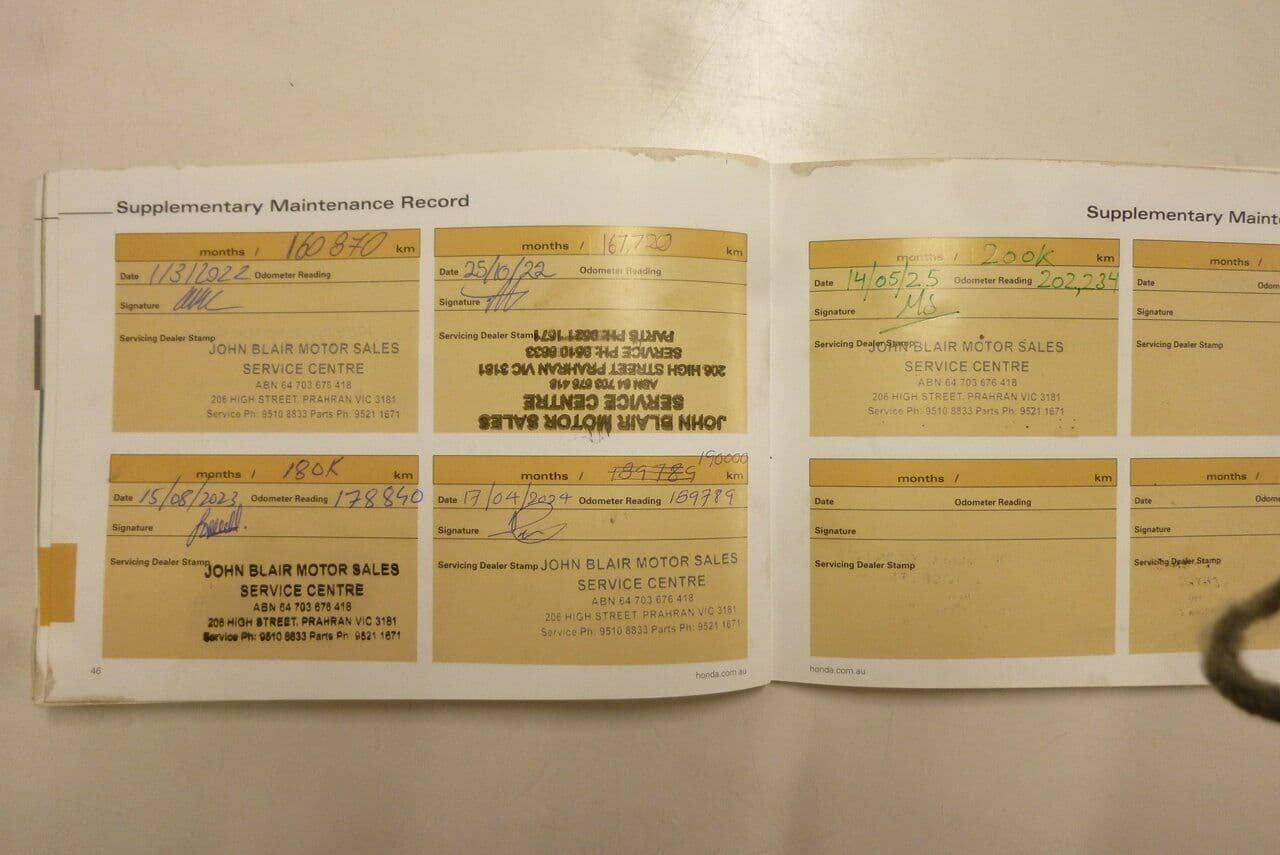 Supplementary Maintenance Record
months / 160 870 km
Date 1/3/2022 Odometer Reading
Signature
Servicing Dealer Stamp
JOHN BLAIR MOTOR SALES
SERVICE CENTRE
ABN 64 703 676 418
206 HIGH STREET, PRAHRAN VIC 3181
Service Ph: 9510 8833 Parts Ph: 9521 1671
months / 167,720 km
Date 25/10/22 Odometer Reading
Signature
Servicing Dealer Stamp
JOHN BLAIR MOTOR SALES
SERVICE CENTRE
ABN 64 703 676 418
206 HIGH STREET PRAHRAN VIC 3181
SERVICE PH: 9510 8833
PARTS PH: 9521 1671
months / 180K km
Date 15/08/2023 Odometer Reading 178840
Signature
Servicing Dealer Stamp
JOHN BLAIR MOTOR SALES
SERVICE CENTRE
ABN 64 703 676 418
206 HIGH STREET, PRAHRAN VIC 3181
Service Ph: 9510 8833 Parts Ph: 9521 1671
190000
months / 189789 km
Date 17/04/2024 Odometer Reading 189789
Signature
Servicing Dealer Stamp
JOHN BLAIR MOTOR SALES
SERVICE CENTRE
ABN 64 703 676 418
206 HIGH STREET, PRAHRAN VIC 3181
Service Ph: 9510 8833 Parts Ph: 9521 1671
46
honda.com.au
Supplementary Maint
months / 200K km
Date 14/05/25 Odometer Reading 202,234
Signature MS
Servicing Dealer Stamp
JOHN BLAIR MOTOR SALES
SERVICE CENTRE
ABN 64 703 676 418
206 HIGH STREET, PRAHRAN VIC 3181
Service Ph: 9510 8833 Parts Ph: 9521 1671
months /
Date Odom
Signature
Servicing Dealer Stamp
months / km
Date Odometer Reading
Signature
Servicing Dealer Stamp
months /
Date Odom
Signature
Servicing Dealer Stamp
honda.com.au